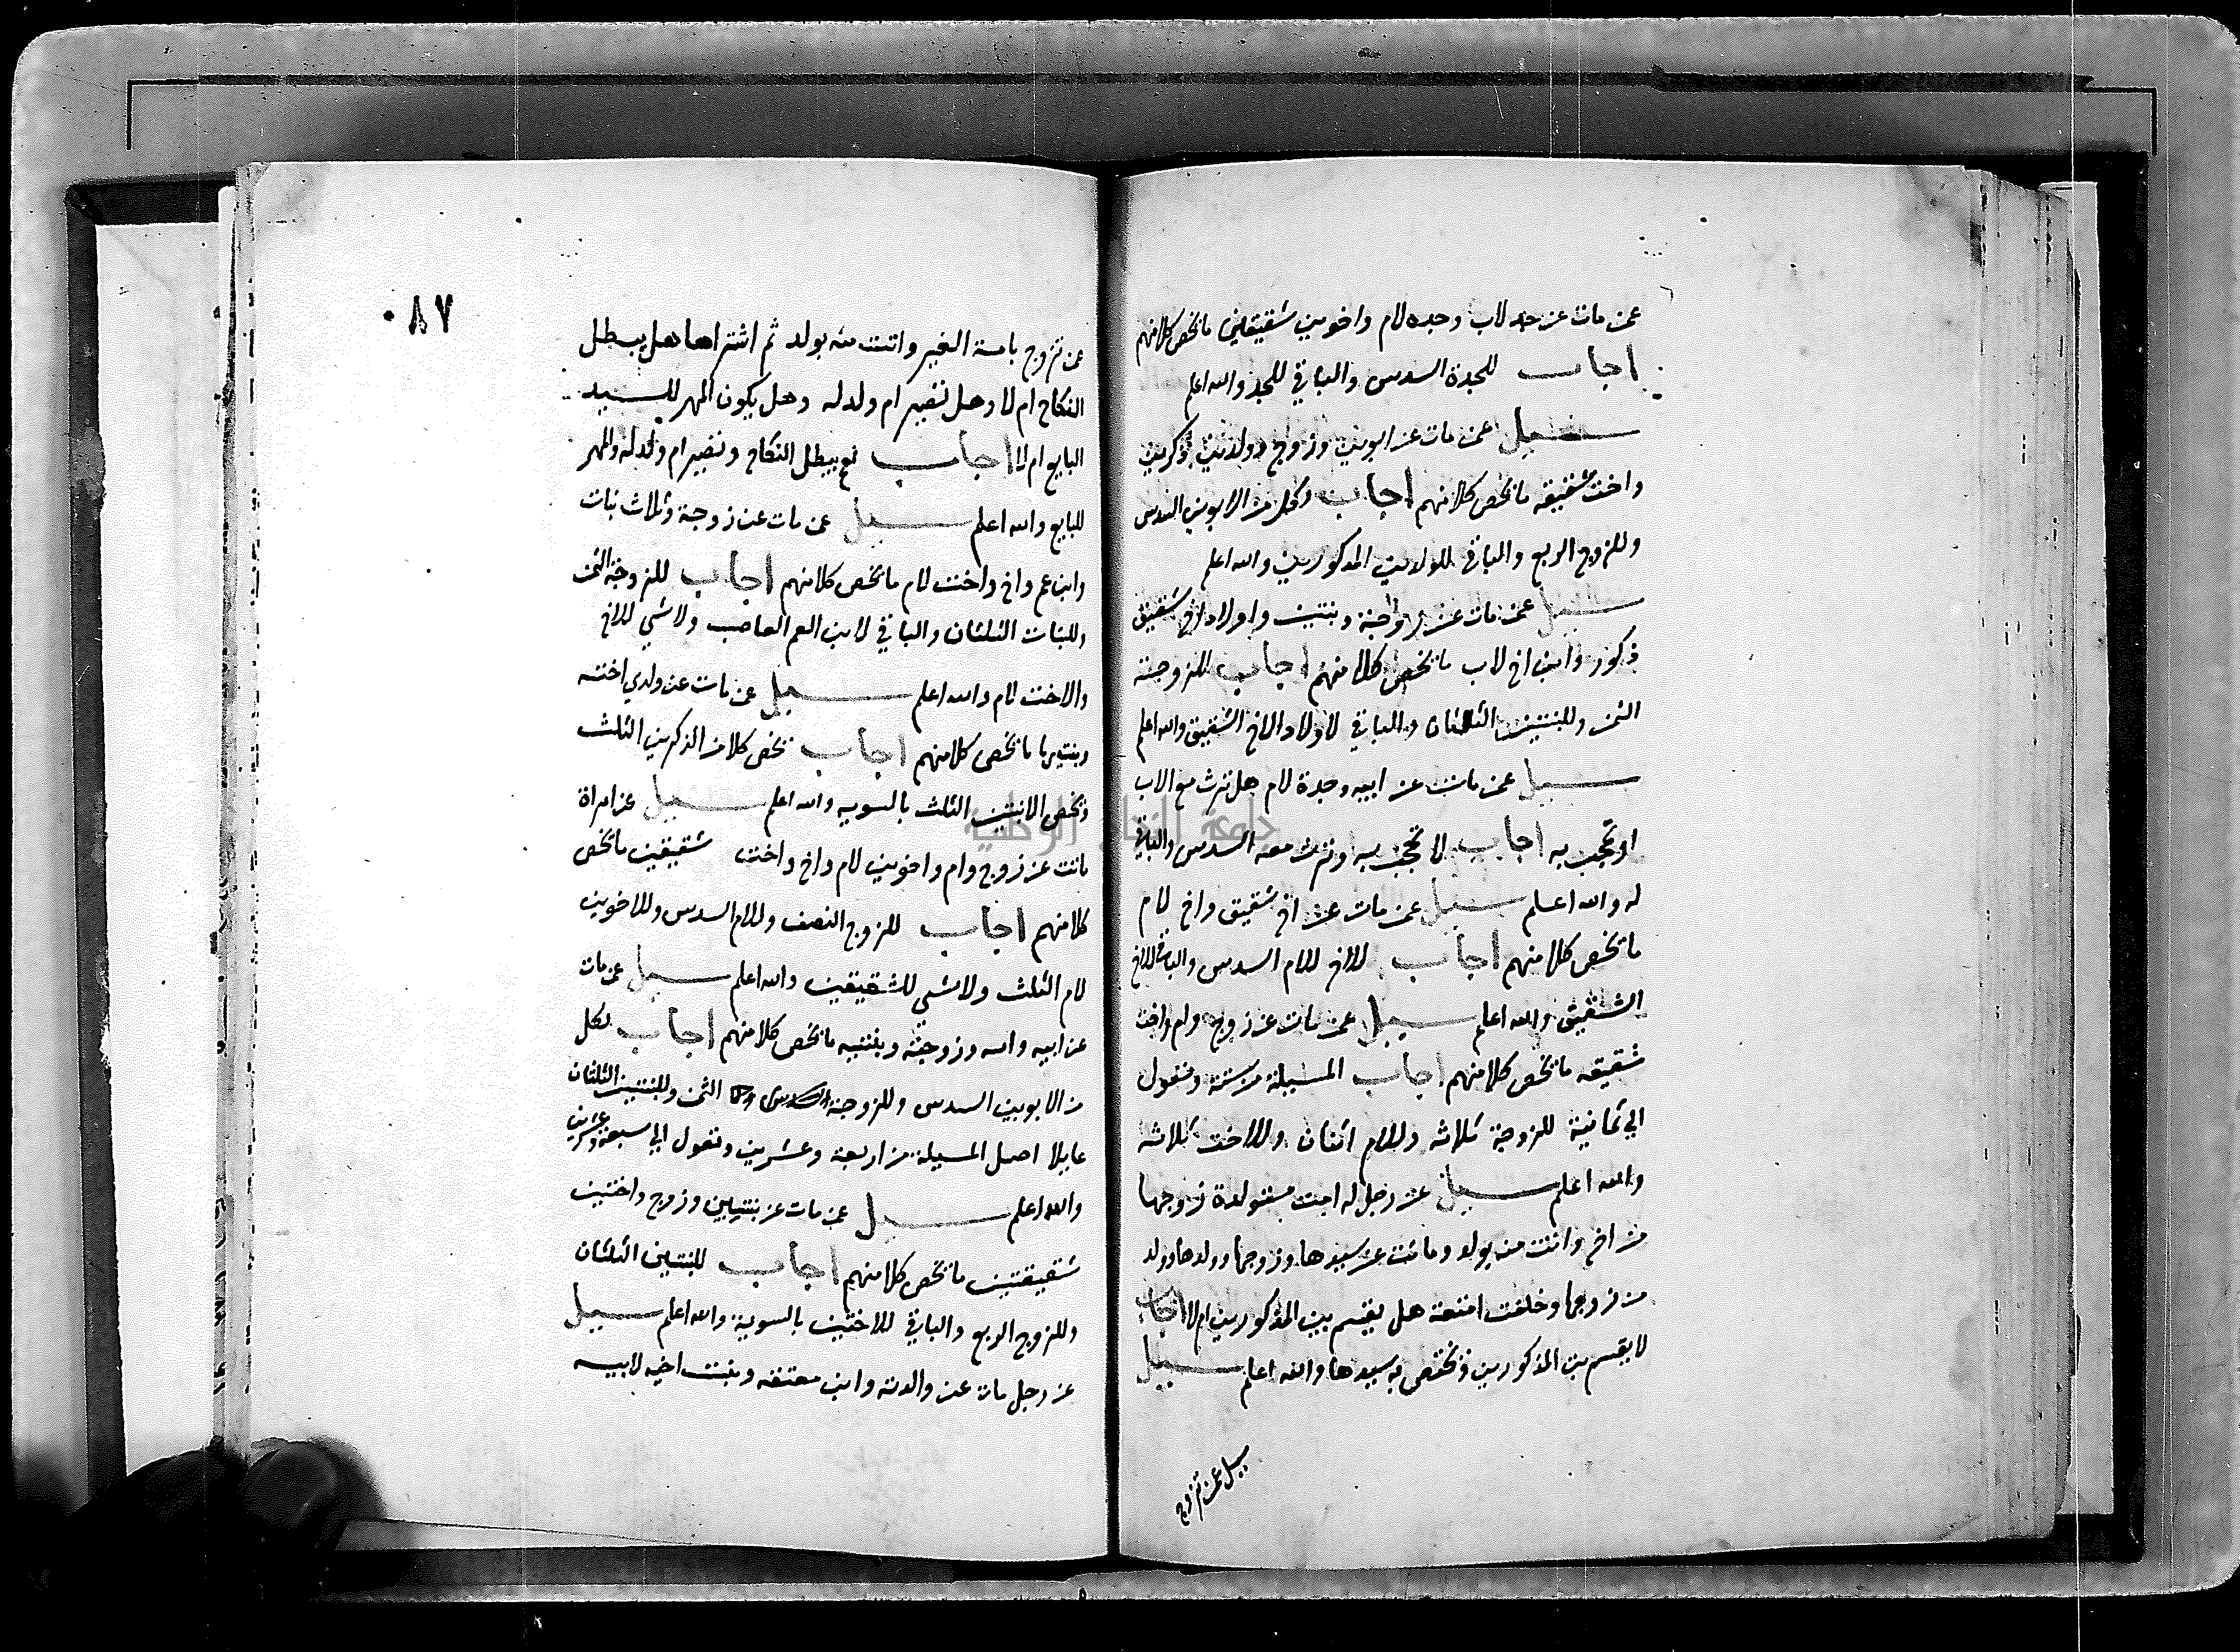 عمن مات عن جد لاب وجده لام واخوين شقيقين ما يخص كلا منهم
اجاب للجدة السدس والباقي للجد والله اعلم
سيل عمن مات عن ابوين وزوج وولدين ذكرين
واخت شقيقه ما يخص كلا منهم اجاب لكل من الابوين السدس
وللزوج الربع والباقي للولدين المذكورين والله اعلم
سيل عمن مات عن زوجة وبنتين واولاد اخ شقيق
ذكور وابن اخ لاب ما يخص كلا منهم اجاب للزوجة
الثمن وللبنتين الثلثان والباقي لاولاد الاخ الشقيق والله اعلم
سيل عمن مات عن ابيه وجدة لام هل ترث مع الاب
او تحجب به اجاب لا تحجب به وترث معه السدس والباقي
له والله اعلم سيل عمن مات عن اخ شقيق واخ لام
ما يخص كلا منهم اجاب للاخ للام السدس والباقي للاخ
الشقيق والله اعلم سيل عمن مات عن زوج وام واخت
شقيقه ما يخص كلا منهم اجاب المسيلة من ستة وتعول
الي ثمانية للزوجة ثلاثه وللام اثنان وللاخت ثلاثه
والله اعلم سيل عن رجل له امت مستولدة زوجها
من اخر واتت منه بولد وماتت عن سيدها وزوجها وولدها وولد
من زوجها وخلفت امتعة هل يقسم بين المذكورين ام لا اجاب
لا يقسم بين المذكورين ويختص به سيدها والله اعلم سيل
سيل عمن تزوج
٠٨٧
عن تزوج بامة الغير واتت منه بولد ثم اشتراها هل يبطل
النكاح ام لا وهل تصير ام ولد له وهل يكون المهر للسيد
البايع ام لا اجاب نعم يبطل النكاح وتصير ام ولد له والمهر
للبايع والله اعلم سيل عن مات عن زوجة وثلاث بنات
وابن عم واخ واخت لام ما يخص كلا منهم اجاب للزوجة الثمن
وللبنات الثلثان والباقي لابن العم العاصب ولا شي للاخ
والاخت لام والله اعلم سيل عن مات عن ولدي اخته
وبنتيها ما يخص كلا منهم اجاب يخص كلا من الذكرين الثلث
ويخص الانثيين الثلث بالسويه والله اعلم سيل عن امراة
ماتت عن زوج وام واخوين لام واخ واخت شقيقين ما يخص
كلا منهم اجاب للزوج النصف وللام السدس وللاخوين
لام الثلث ولا شي للشقيقين والله اعلم سيل عمن مات
عن ابيه وامه وزوجته وبنتيه ما يخص كلا منهم اجاب لكل
من الابوين السدس وللزوجة الثمن وللبنتين الثلثان
عايلا اصل المسيلة من اربعة وعشرين وتعول الي سبعة وعشرين
والله اعلم سيل عمن مات عن بنتين وزوج واختين
شقيقتين ما يخص كلا منهم اجاب للبنتين الثلثان
وللزوج الربع والباقي للاختين بالسوية والله اعلم سيل
عن رجل مات عن والدته وابن معتقه وبنت اخيه لابيه
جامعة النجاح الوطنية